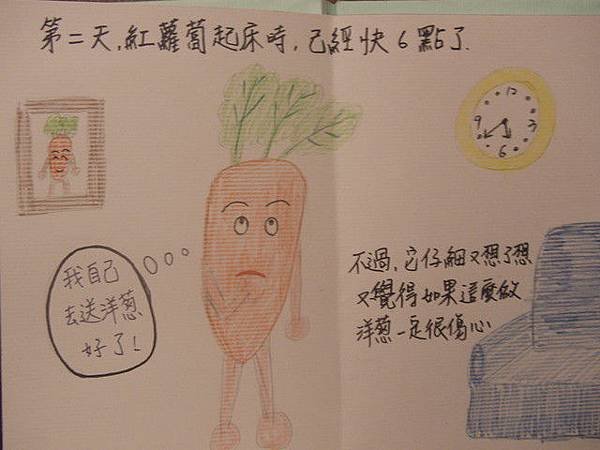 第二天,紅蘿蔔起床時,已經快6點了.
12
9
3
6
我自己
去送洋蔥
好了!
不過,它仔細又想了想
又覺得如果這麼做
洋蔥一定很傷心